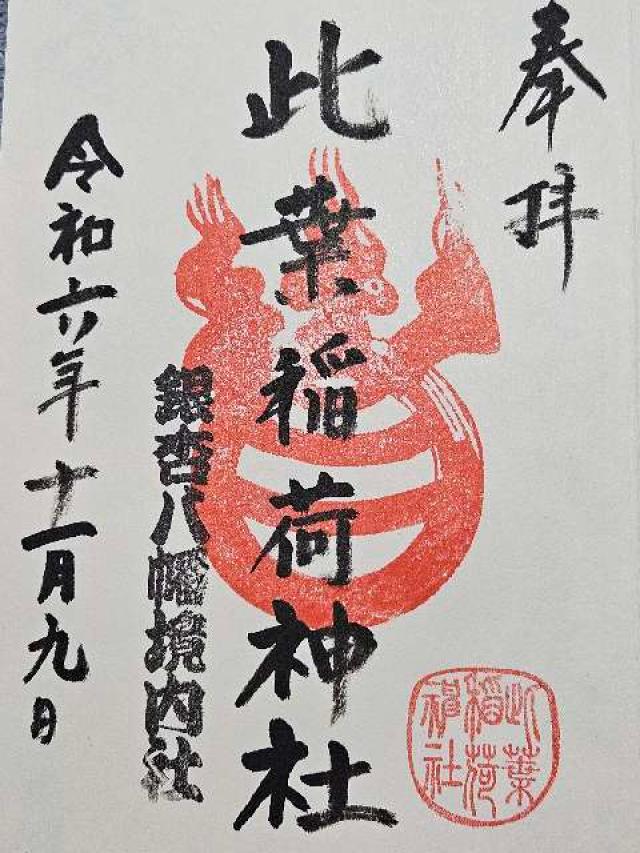 奉拝
此葉稲荷神社
銀杏八幡境内社
令和六年十一月九日
此葉
稲荷
神社